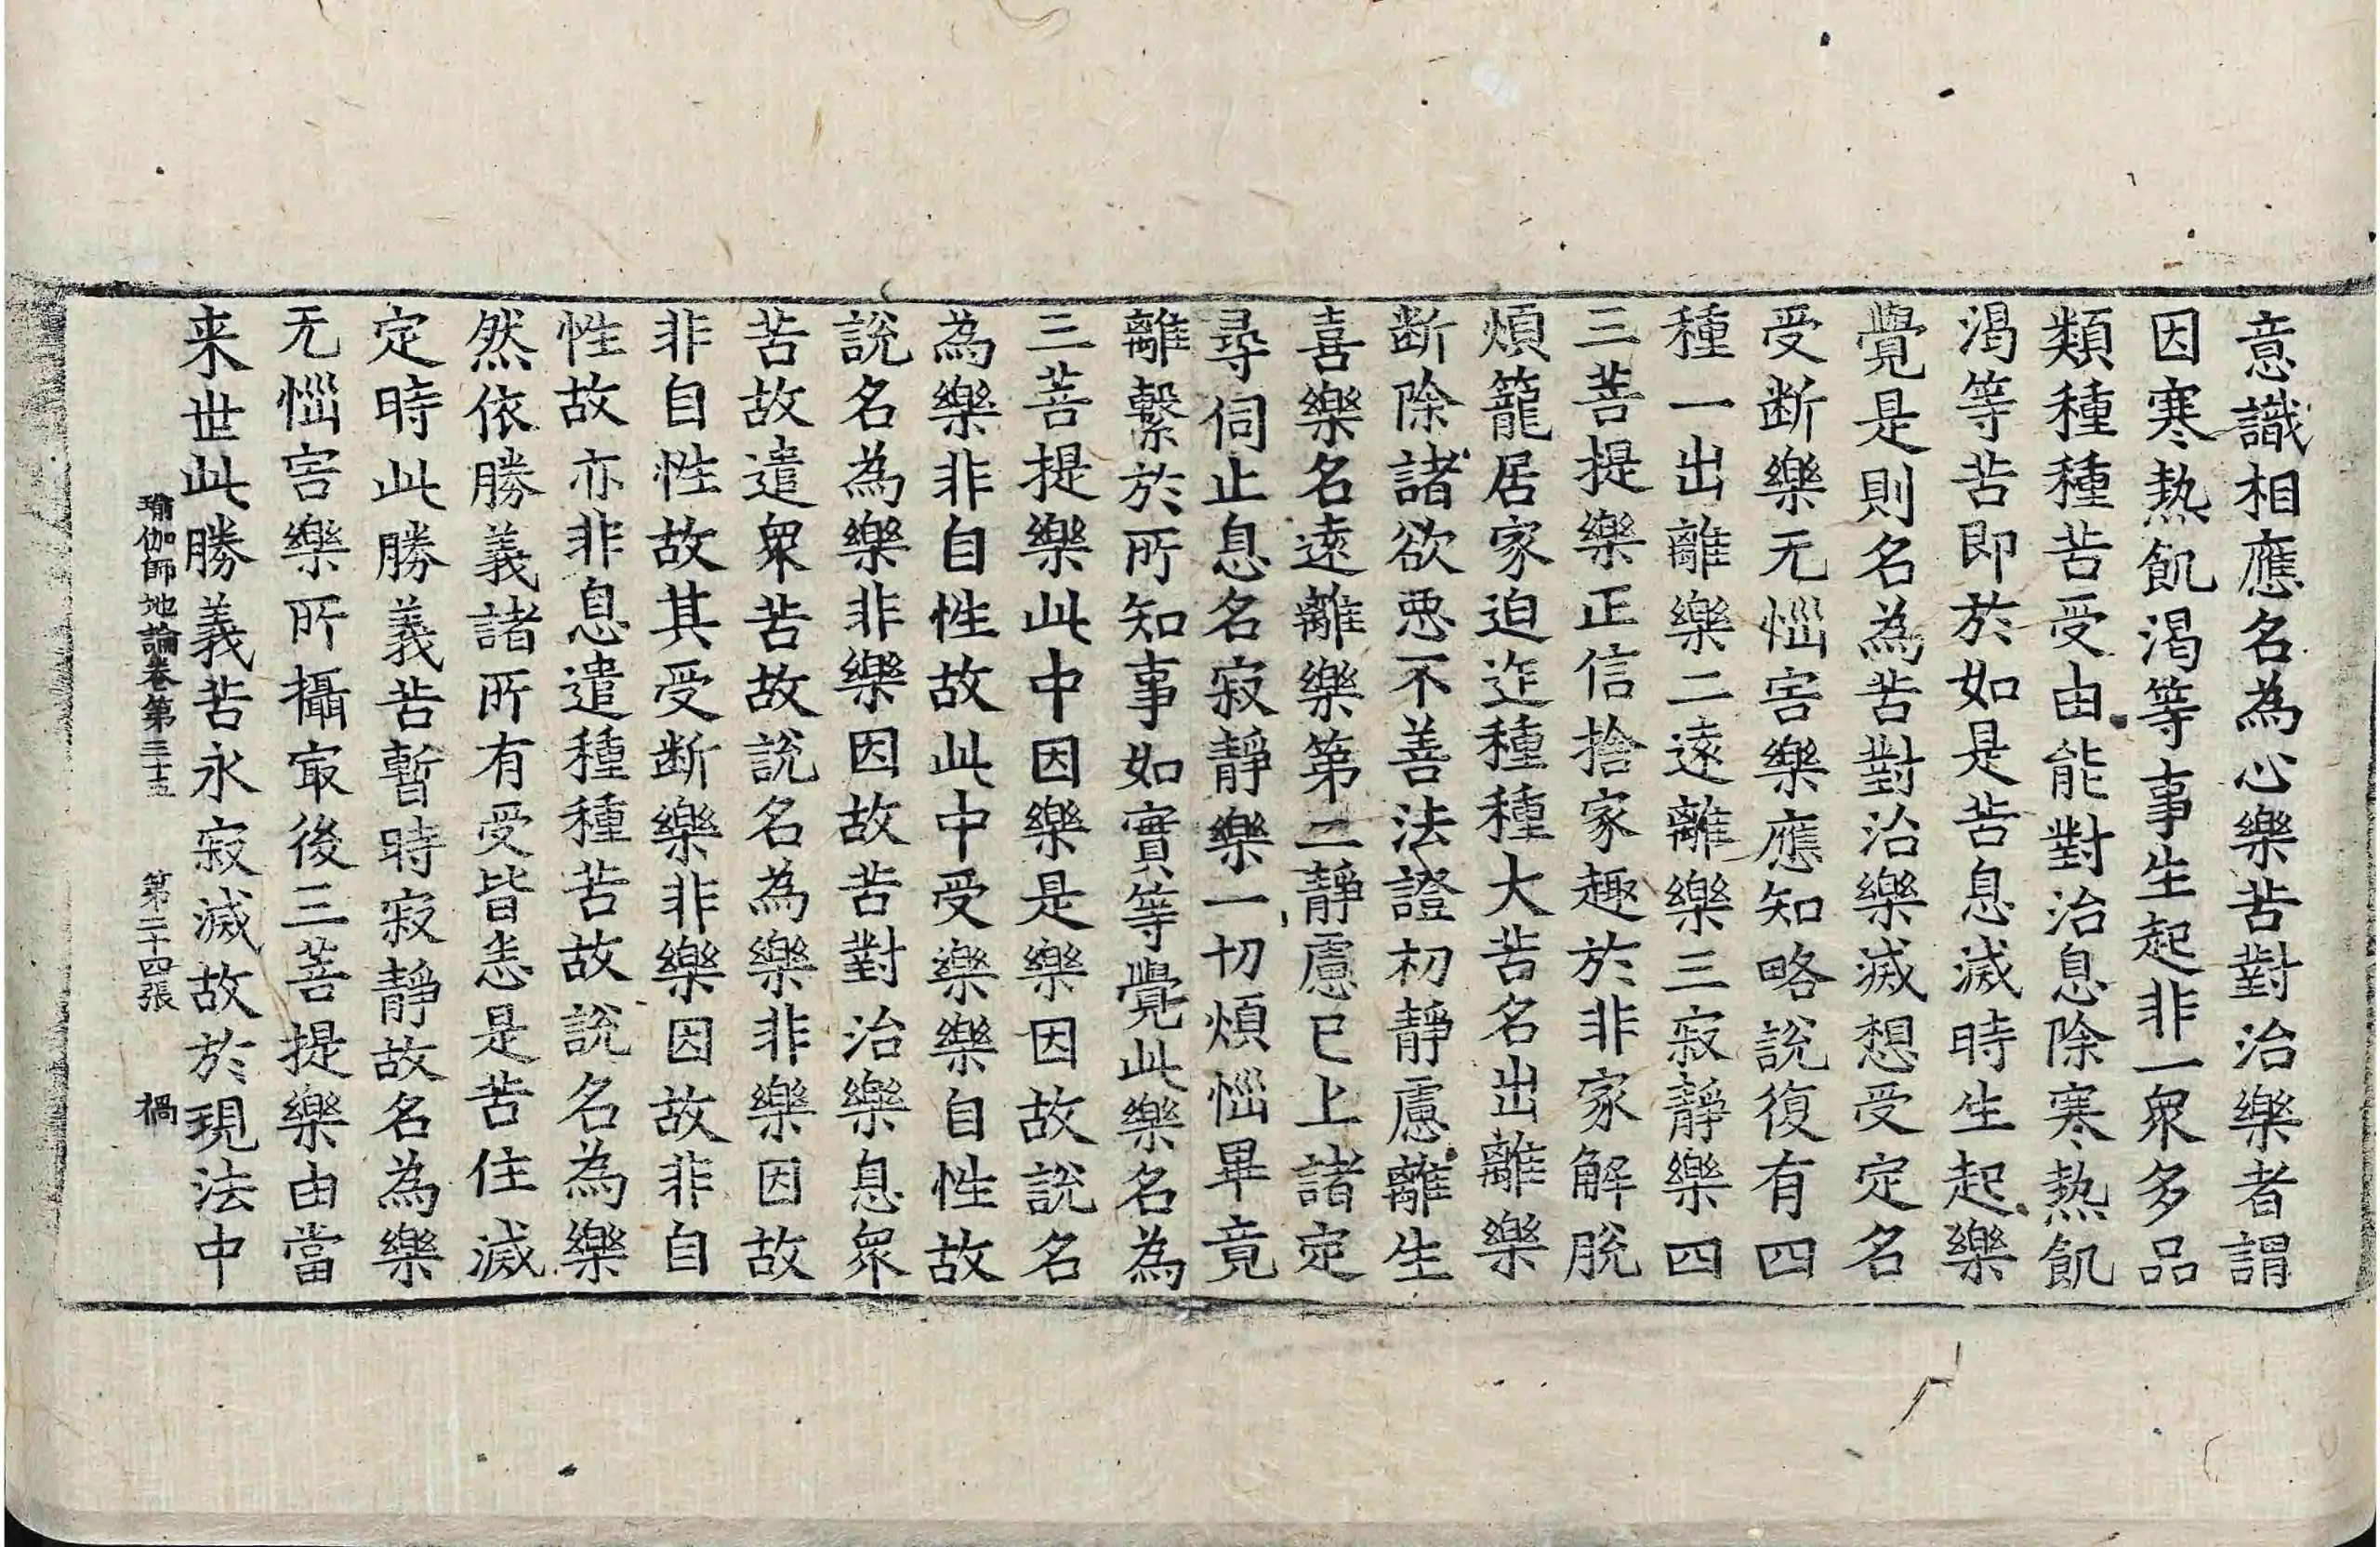 意識相應名為心樂苦對治樂者謂
因寒熱飢渴等事生起非一衆多品
類種種苦受由能對治息除寒熱飢
渴等苦即於如是苦息滅時生起樂
覺是則名為苦對治樂滅想受定名
受断樂无惱害樂應知略說復有四
種一出離樂二遠離樂三寂靜樂四
三菩提樂正信捨家趣於非家解脫
煩籠居家迫迮種種大苦名出離樂
断除諸欲惡不善法證初靜慮離生
喜樂名遠離樂第二靜慮已上諸定
尋伺止息名寂靜樂一切煩惱畢竟
離繫於所知事如實等覺此樂名為
三菩提樂此中因樂是樂因故說名
為樂非自性故此中受樂樂自性故
說名為樂非樂因故苦對治樂息衆
苦故遣衆苦故說名為樂非樂因故
非自性故其受断樂非樂因故非自
性故亦非息遣種種苦故說名為樂
然依勝義諸所有受皆悉是苦住滅
定時此勝義苦暫時寂靜故名為樂
无惱害樂所攝最後三菩提樂由當
来世此勝義苦永寂滅故於現法中
瑜伽師地論卷第三十五 第二十四張 禍